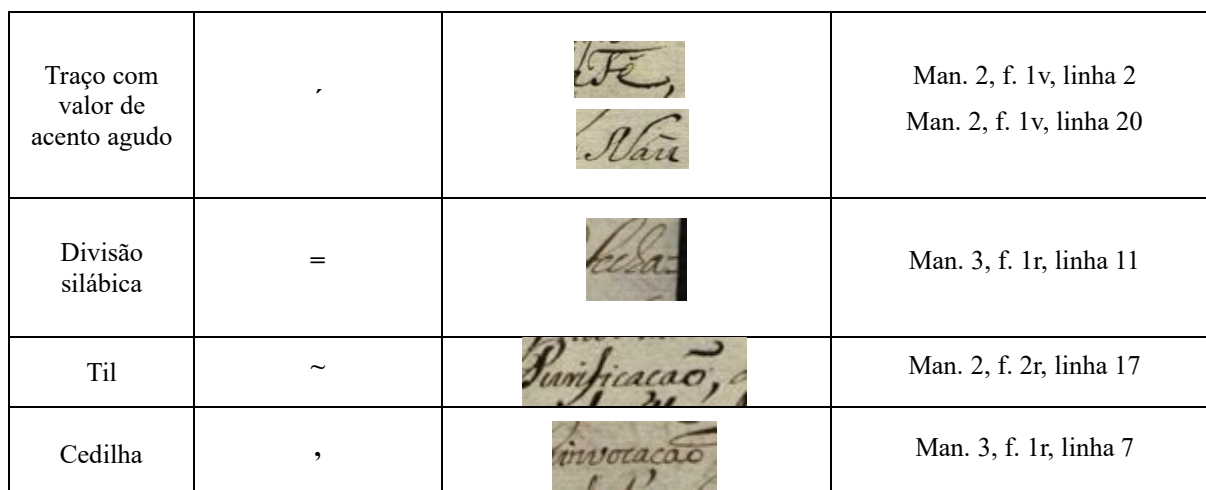 Traço com
valor de
acento agudo
´
Fé,
Naũ
Man. 2, f. 1v, linha 2
Man. 2, f. 1v, linha 20
Divisão
silábica
=
Man. 3, f. 1r, linha 11
Til
~
Purificacaõ,
Man. 2, f. 2r, linha 17
Cedilha
,
invocacaõ
Man. 3, f. 1r, linha 7